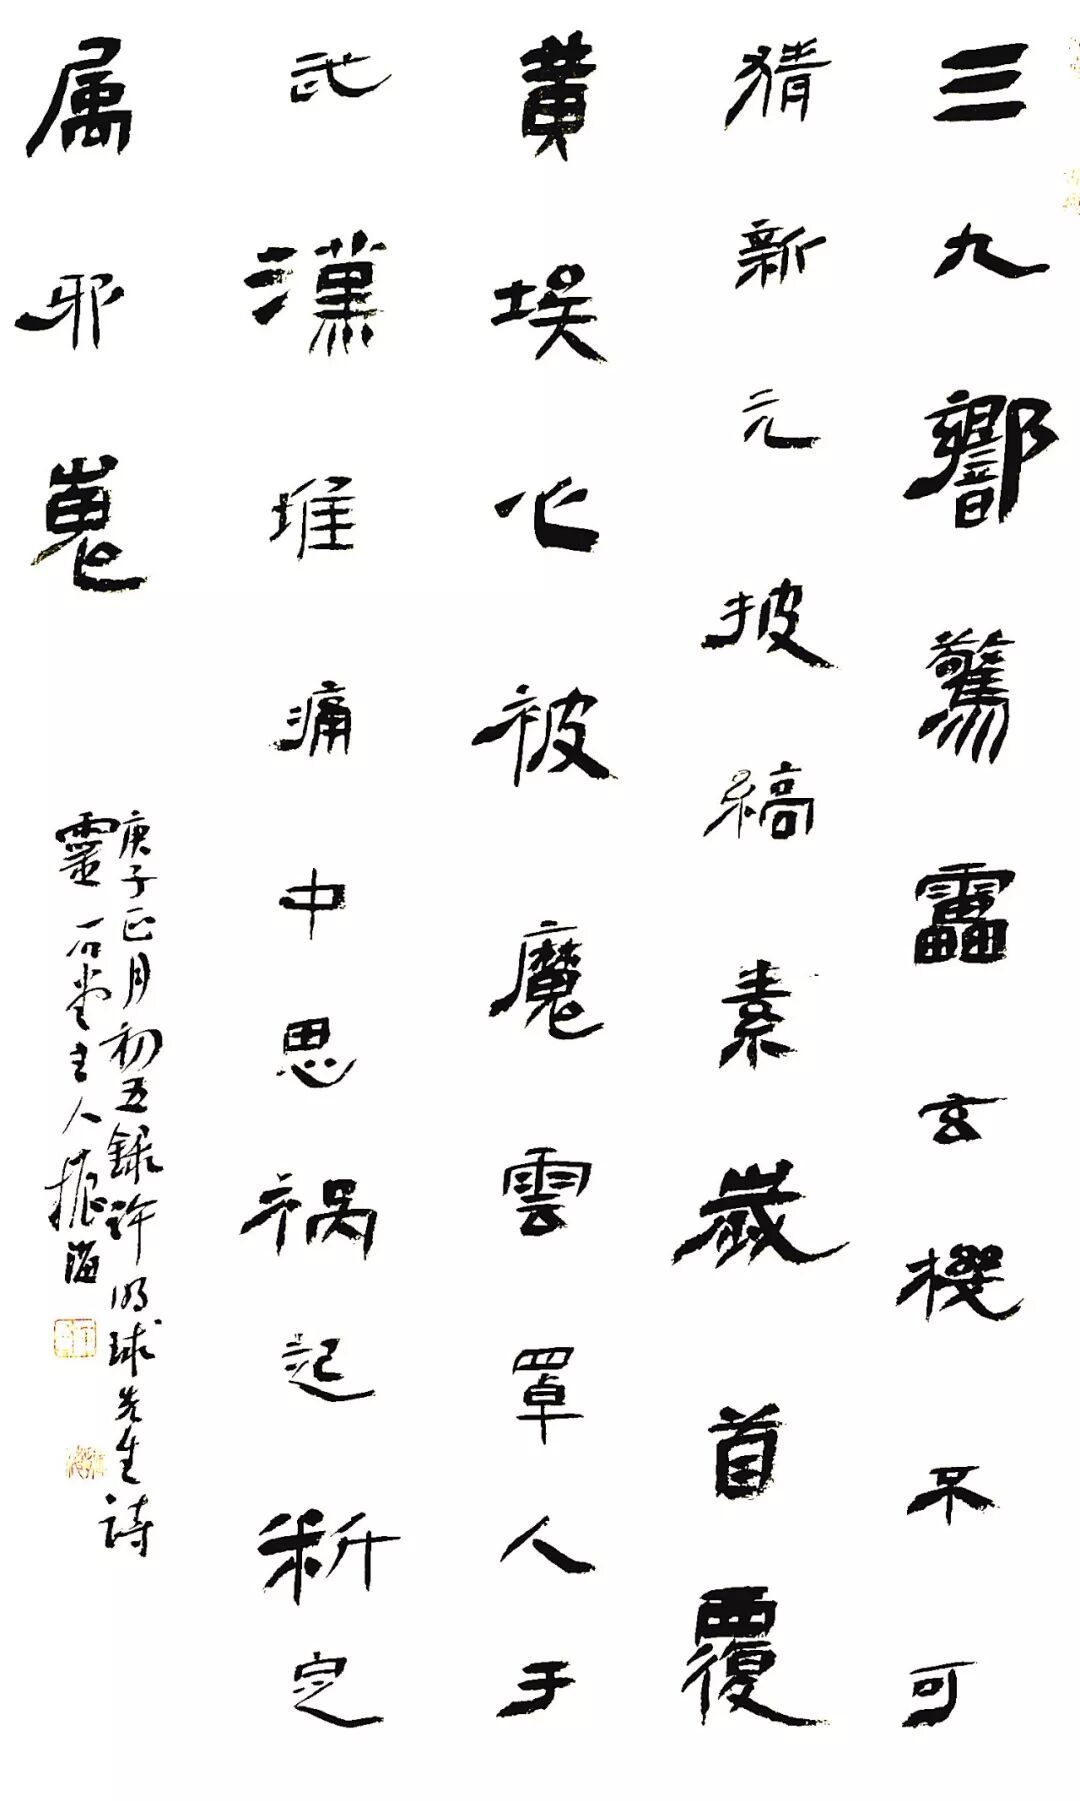 三九響驚靁玄機不可
猜新元披縞素歲首覆
黄埃心被魔雲罩人于
武漢堆痛中思祸起料定
属邪嵬
庚子正月初五録許明球先生詩
靈石堂主人振海